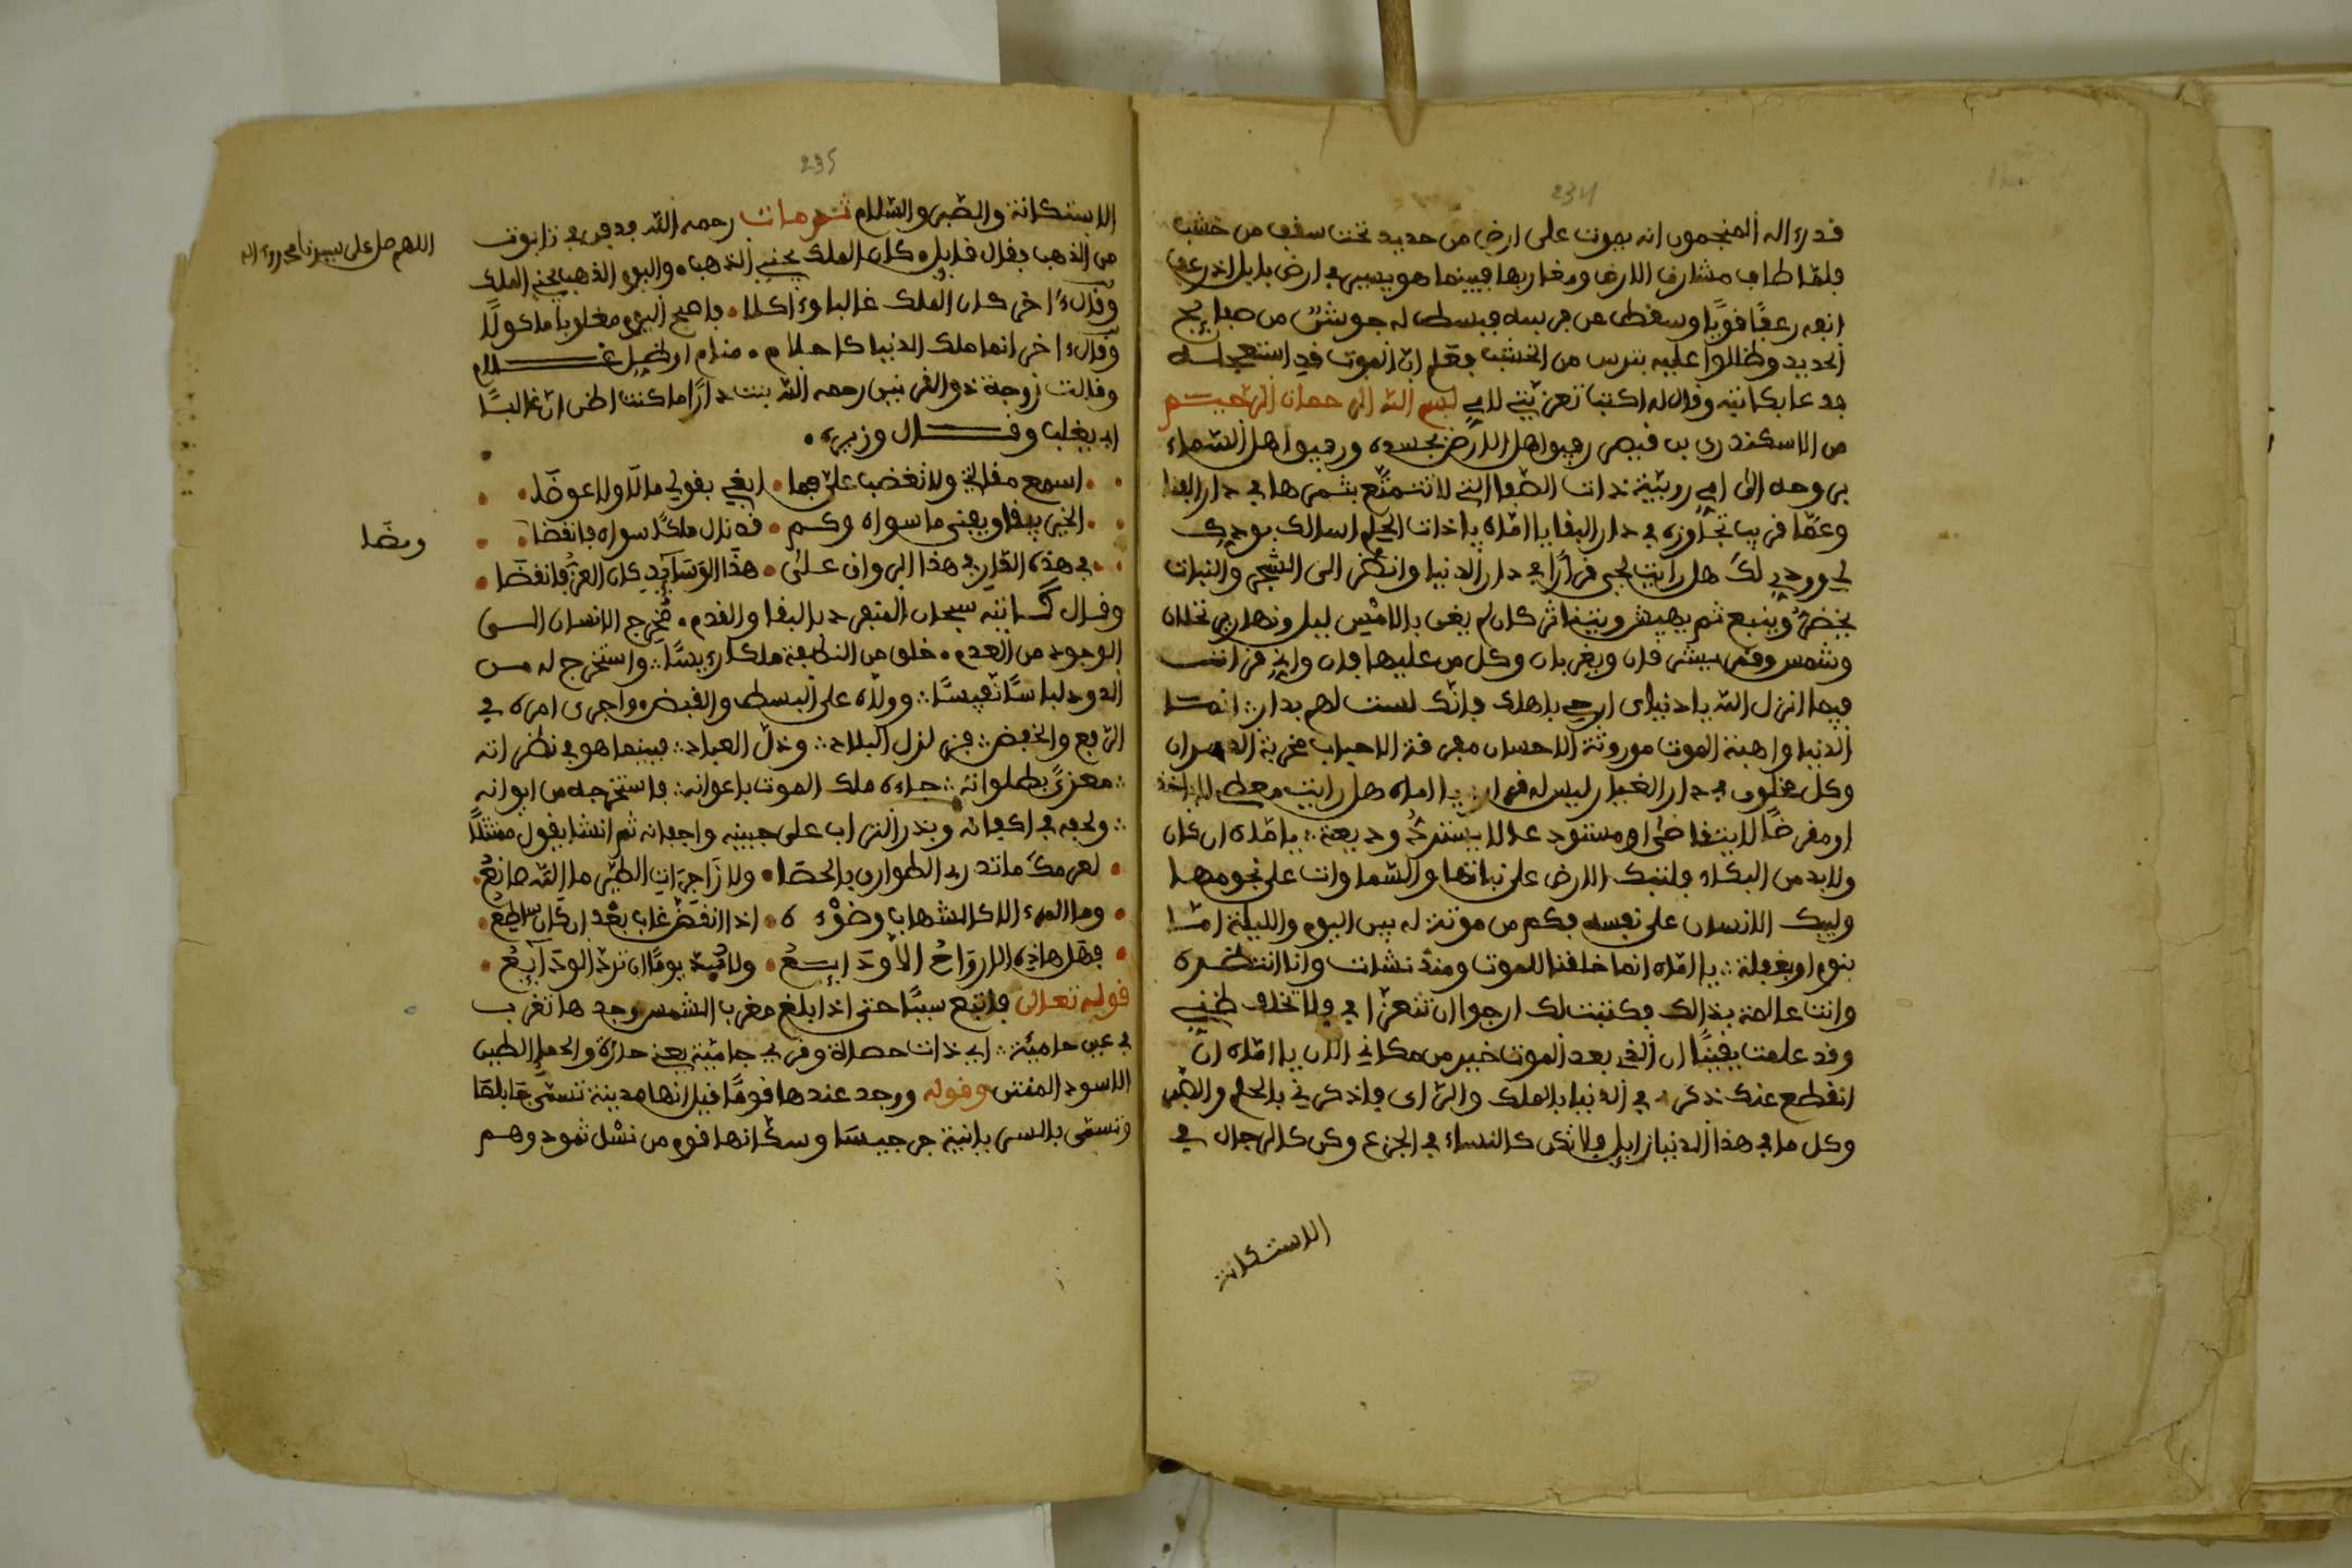 234
قدروا له المنجمون انه يموت على ارض من حديد تحت سقف من خشب
فلمّا طاف مشارق الارض ومغاربها فبينما هو يسير في ارض بابل اذ رعف
انفه رعفًا قويًا وسقط عن فرسه فبسط له جوشن من صفايح
الحديد وظللوا عليه بترس من الخشب فعلم ان الموت قد استعجله
فدعا بكاتبه وقال له اكتب تعزيتي لامي بسم الله الرحمان الرحيم
من الاسكندري بن قيصر رفيق اهل الارض بجسده ورفيق اهل السماء
بروحه الى امي روميّة ذات الصفا التي لا تتمتع بثمرها في دار الفنا
وعمّا قريب تجاوزه في دار البقا يا امّاه يا ذات الحلم اسالك بودك
لي وودي لك هل رايت لحي قرارًا في دار الدنيا وانظري الى الشجر والنبات
يخضر وينبع ثم يهيش ويتناثر كان لم يغن بالامس ليل ونهار يختلفان
وشمس وقمر يشرقان ويغربان وكل من عليها فان واني قرات
فيما انزل الله يا دنياي ارحي باهلك فانّك لست لهم بدار انما
الدنيا واهبة الموت موروثة الاحسان مفرقة الاحباب مخربة العمران
وكل مخلوق في دار الغيار ليس له قرار يا اماه هل رايت معطي لا ياخذ
او مقرضًا لا يتقاضى او مستودعا لا يسترد وديعة يا امّاه ان كان
ولابد من البكاء فلتبك الارض على نباتها والسماوات على نجومها
وليبك الانسان على نفسه فكم من موتة له بين اليوم والليلة امّا
بنوم او بغفلة يا امّاه انما خلقنا للموت ومنذ نشات وانا انتظره
وانت عالمة بذالك فكتبت لك ارجوا ان تتعزا في ولا تخلف ظني
وقد علمت يقينًا ان الذي بعد الموت خير من مكاني الان يا امّاه ان
انقطع عنك ذكري في الدنيا بالملك والراي فاذكريني بالحلم والصبر
وكل ما في هذا الدنيا زايل ولا تكن كالنساء في الجزع وكن كالرجال في
الاستكانة
235
الاستكانة والصبر والسّلام ثم مات رحمه الله ودفن في تابوت
من الذهب فقال قايل كان الملك يخبي الذهب واليوم الذهب يخبي الملك
وقال اخر كان الملك غالبا وءاكلا فاصبح اليوم مغلوبا ماكولًا
وقال ءاخر انما ملك الدنيا كاحلام منام او ظل غمام
وقالت زوجة ذو القرنين رحمه الله بنت دارًا ما كنت اظن ان غالبًا
ابي يغلب وقال وزيره
اسمع مقالتي ولا تغضب علي فما ابغي بقولي مالًا ولا عوضًا
الخير يبقا ويفنى ما سواه وكم قد نال ملكًا سواه فانقضا
في هذه الدّار في هذا الرواق على هذا الوسايد كان العز فانقضا
وقال كاتبه سبحان المتفرد بالبقا والقدم مُخرج الانسان الى
الوجود من العدم خلق من النطفة ملكا رييسًا واستخرج له من
الدود لباسًا نفيسًا وولّاه على البسط والقبض واجرى امره في
الرّفع والخفض فزلزل البلاد وذلّ العباد فبينما هو في نظرانه
معزز بطلوانه جاءه ملك الموت باعوانه فاستخرجه من ايوانه
ولحفه في اكفانه وبذر التراب على جبينه واجفانه ثم انشا يقول متمثلًا
لعرمك ما تدري الطوارق بالحصا ولا زاجرات الطير ما الله صانع
وما المرء الا كالشهاب وضوْءه اذا انقضّ غاب بعد ان كان ساطع
فهل هاذه الارواح الا ودايع ولابد يومًا ان تردّ الودايع
قوله تعالى فاتبع سببًا حتى اذا بلغ مغرب الشمس وجدها تغرب
في عين حامية اي ذات حماة وقري حاميّة يعني حارّة والحما الطين
الاسود المنتن وقوله ووجد عندها قومًا قيل انها مدينة تسمّى جابلقا
وتسمّى بالسريانية جرجيسا وسكّانها قوم من نسْل ثمود وهم
اللهم صل على سيدنا محمد وءاله
ومضا